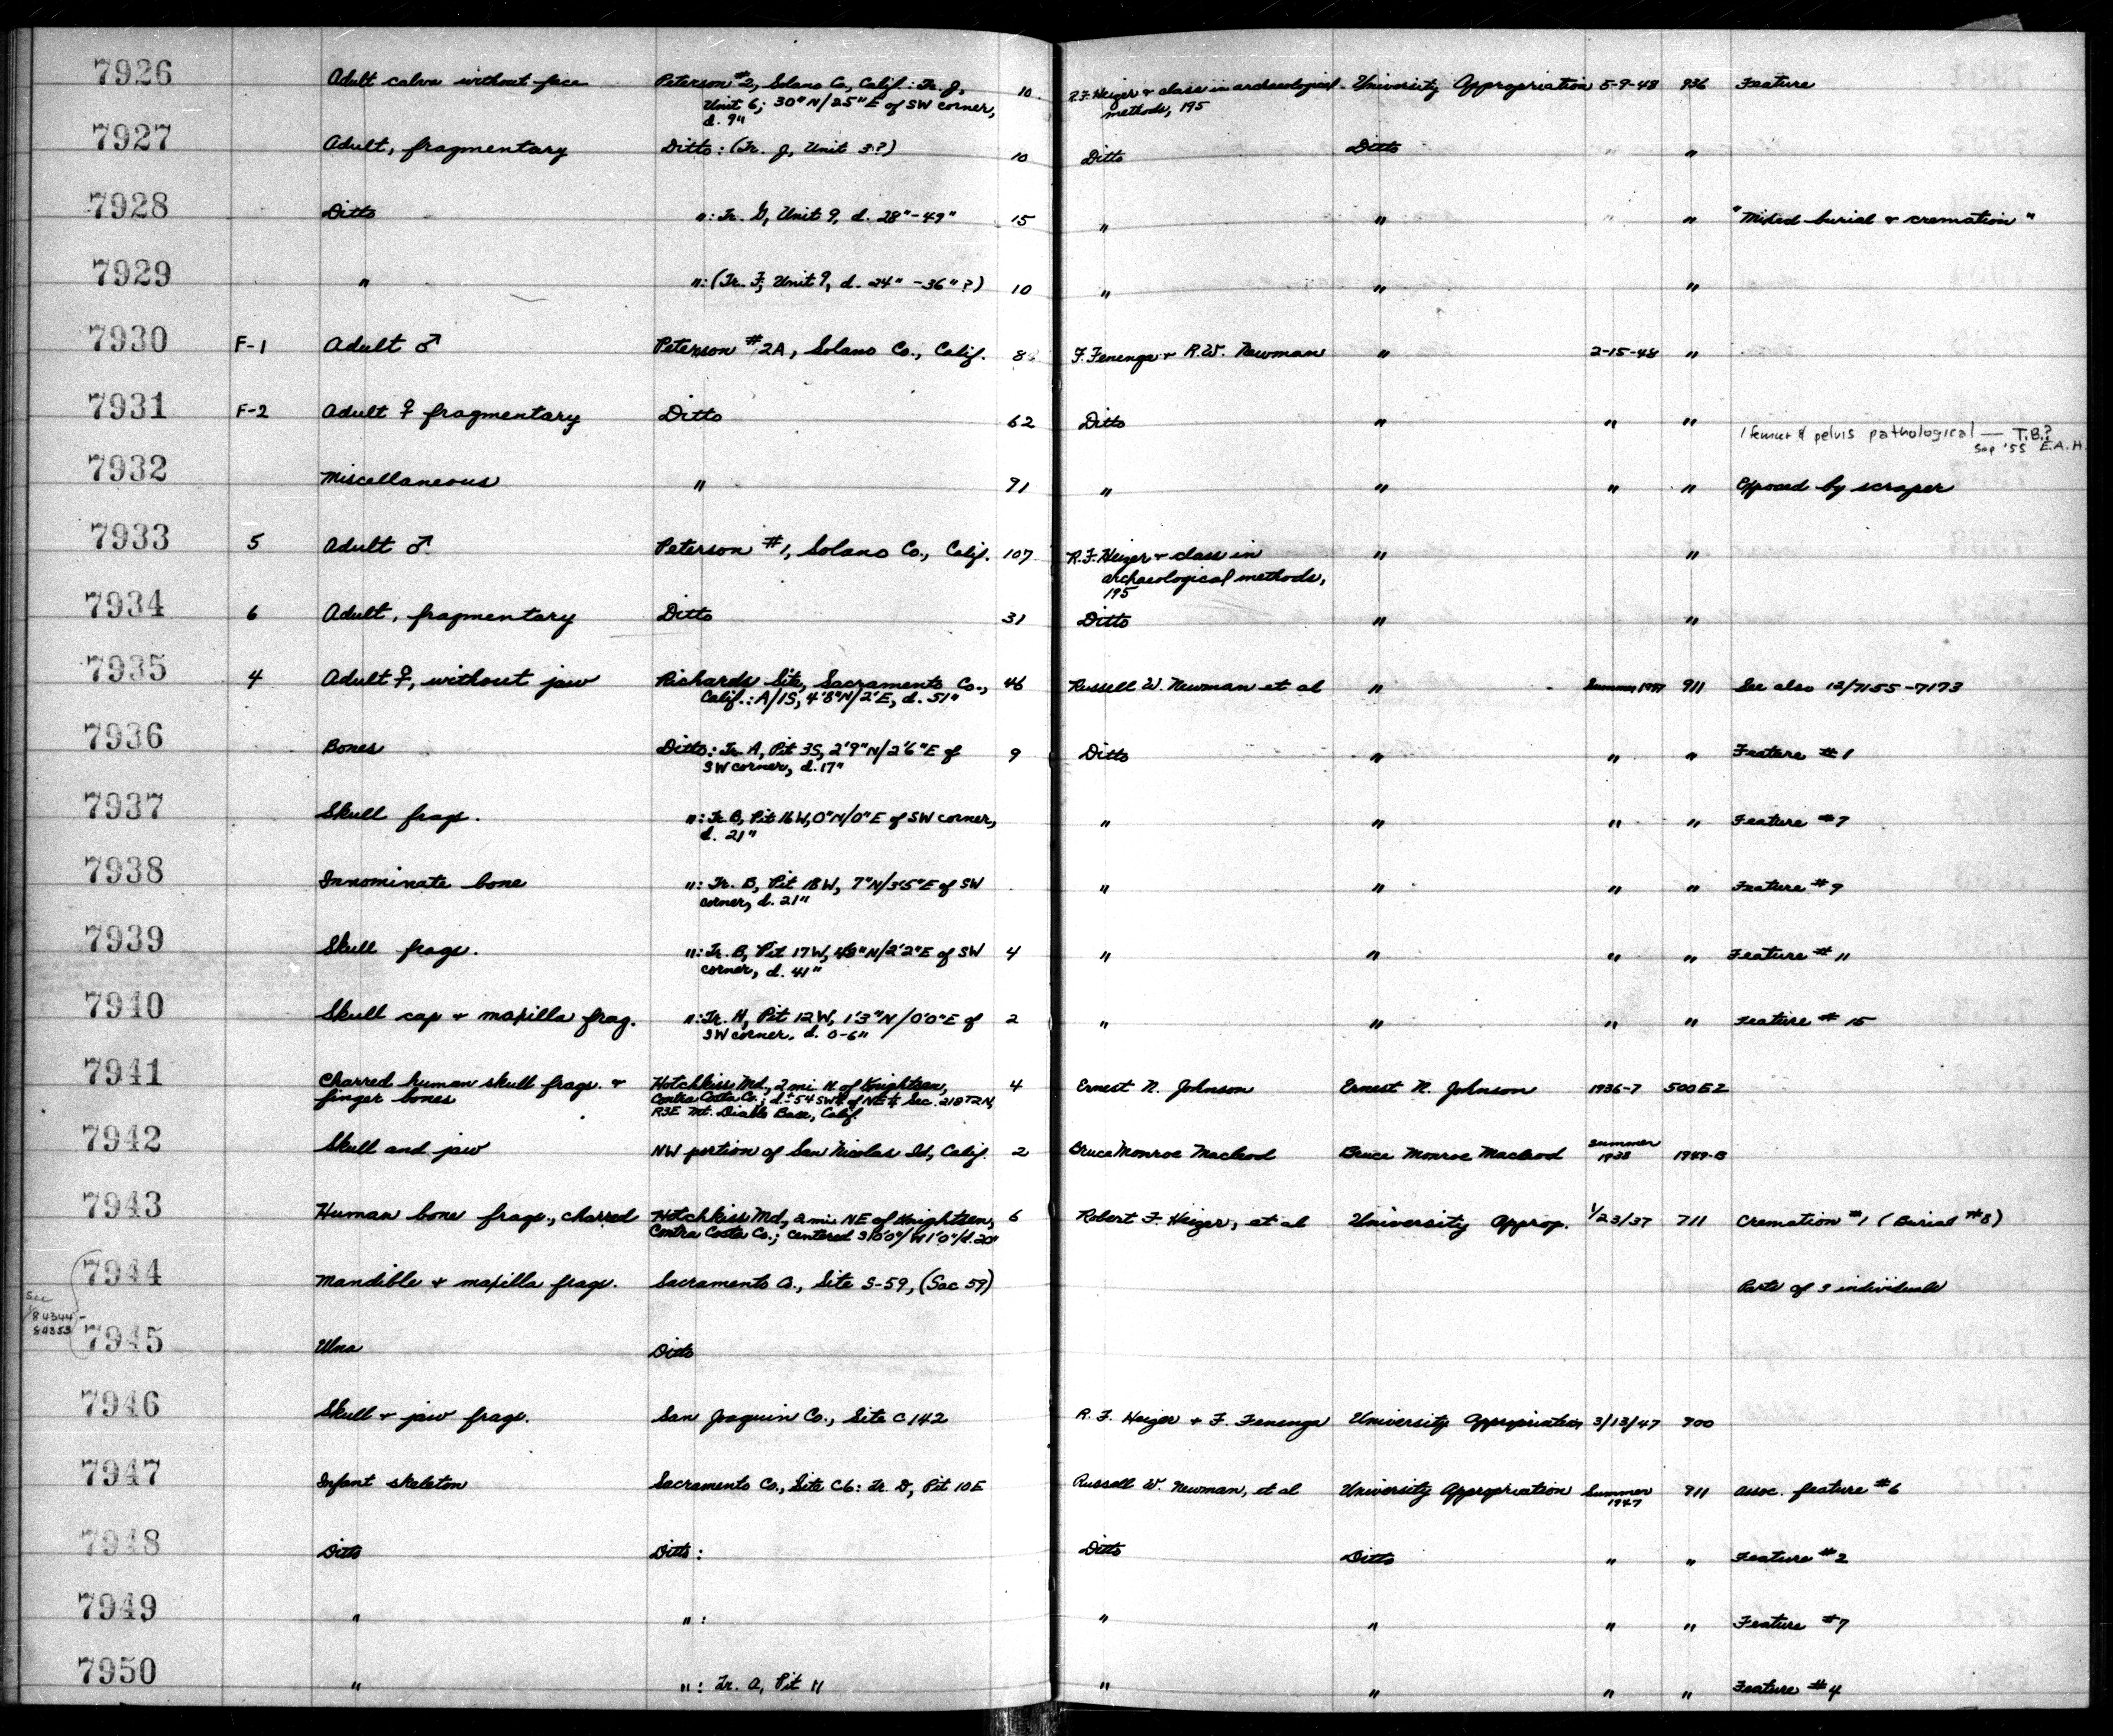 7926 Adult calva without face Peterson #2, Solano Co., Calif.: Tr. J, 10 R.F. Heizer + class in archaeological University Appropriation 5-9-48 936 Feature
Unit 6; 30" N/25" E of SW corner, methods, 195
d. 9"
7927 Adult, fragmentary Ditto: (Tr. J, Unit 3?) 10 Ditto Ditto " "
7928 Ditto ": Tr. G, Unit 9, d. 28"-49" 15 " " " " "Mixed burial + cremation"
7929 " ": (Tr. F, Unit 9, d. 24"-36"?) 10 " " "
7930 F-1 Adult ♂ Peterson #2A, Solano Co., Calif. 8 F. Fenenga + R.W. Newman " 2-15-48 "
7931 F-2 Adult ♀ fragmentary Ditto 62 Ditto " " "
1 femur & pelvis pathological — T.B.?
Sep '55 E.A.H.
7932 Miscellaneous " 91 " " " " Exposed by scraper
7933 5 Adult ♂ Peterson #1, Solano Co., Calif. 107 R.F. Heizer + class in " "
archaeological methods,
195
7934 6 Adult, fragmentary Ditto 31 Ditto " "
7935 4 Adult ♀, without jaw Richards Site, Sacramento Co., 46 Russell W. Newman et al " Summer 1947 911 See also 12/7155-7173
Calif.: A/1S, 4'8"N/2'E, d. 51"
7936 Bones Ditto: Tr. A, Pit 3S, 2'9"N/2'6"E of 9 Ditto " " " Feature #1
SW corner, d. 17"
7937 Skull frags. ": Tr. B, Pit 16W, 0"N/0"E of SW corner, " " " " Feature #7
d. 21"
7938 Innominate bone ": Tr. B, Pit 18W, 7"N/3'5"E of SW " " " " Feature #9
corner, d. 21"
7939 Skull frags. ": Tr. B, Pit 17W, 48"N/2'2"E of SW 4 " " " " Feature #11
corner, d. 41"
7940 Skull cap + maxilla frag. ": Tr. H, Pit 12W, 1'3"N/0'0"E of 2 " " " " Feature #15
SW corner, d. 0-6"
7941 Charred human skull frags. + Hotchkiss Md., 2 mi. N. of Knightsen, 4 Ernest N. Johnson Ernest N. Johnson 1936-7 500EZ
finger bones Contra Costa Co.; of NE¼ Sec. T2N,
R3E Mt. Diablo Base, Calif.
7942 Skull and jaw NW portion of San Nicolas Id., Calif. 2 Bruce Monroe Macleod Bruce Monroe Macleod Summer 1938 1949-B
7943 Human bone frags., charred Hotchkiss Md., 2 mi. NE of Knightsen, 6 Robert F. Heizer, et al University Approp. 1/23/37 711 Cremation #1 (Burial #8)
Contra Costa Co.; centered S10'0"/W1'0"/d.20"
7944 Mandible + maxilla frags. Sacramento Co., Site S-59, (Sac 59) Parts of 3 individuals
See
84344-
84353
7945 Ulna Ditto
7946 Skull + jaw frags. San Joaquin Co., Site C142 R.F. Heizer + F. Fenenga University Appropriation 3/13/47 900
7947 Infant skeleton Sacramento Co., Site C6: Tr. D, Pit 10E Russell W. Newman, et al University Appropriation Summer 1947 911 assoc. feature #6
7948 Ditto Ditto: Ditto Ditto " " Feature #2
7949 " ": " " " " Feature #7
7950 " ": Tr. A, Pit 11 " " " " Feature #4